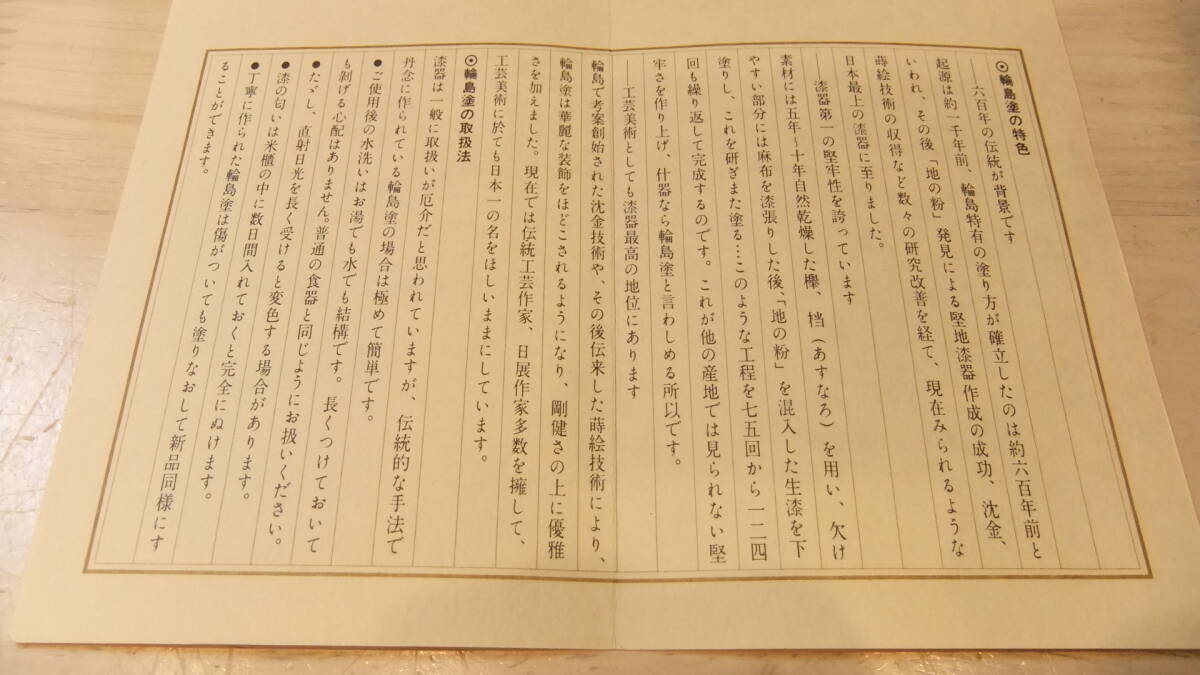 ◉輪島塗の特色
六百年の伝統が背景です
起源は約一千年前、輪島特有の塗り方が確立したのは約六百年前と
いわれ、その後「地の粉」発見による堅地漆器作成の成功、沈金、
蒔絵技術の収得など数々の研究改善を経て、現在みられるような
日本最上の漆器に至りました。
漆器第一の堅牢性を誇っています
素材には五年～十年自然乾燥した欅、档（あすなろ）を用い、欠け
やすい部分には麻布を漆張りした後、「地の粉」を混入した生漆を下
塗りし、これを研ぎまた塗る…このような工程を七五回から一二四
回も繰り返して完成するのです。これが他の産地では見られない堅
牢さを作り上げ、什器なら輪島塗と言わしめる所以です。
―工芸美術としても漆器最高の地位にあります
輪島で考案創始された沈金技術や、その後伝来した蒔絵技術により、
輪島塗は華麗な装飾をほどこされるようになり、剛健さの上に優雅
さを加えました。現在では伝統工芸作家、日展作家多数を擁して、
工芸美術に於ても日本一の名をほしいままにしています。
◉輪島塗の取扱法
漆器は一般に取扱いが厄介だと思われていますが、伝統的な手法で
丹念に作られている輪島塗の場合は極めて簡単です。
●ご使用後の水洗いはお湯でも水でも結構です。長くつけておいて
も剝げる心配はありません。普通の食器と同じようにお扱いください。
●たゞし、直射日光を長く受けると変色する場合があります。
●漆の匂いは米櫃の中に数日間入れておくと完全にぬけます。
●丁寧に作られた輪島塗は傷がついても塗りなおして新品同様にす
ることができます。